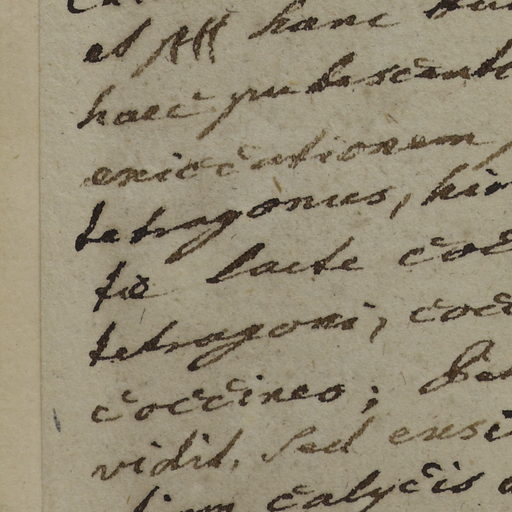 et hanc
haec pubescent
exiccationem
tetragonus, hir
tie lacte coc
tetragoni, cocc
coccineo; Pet
vidit, sed exsic
calycis